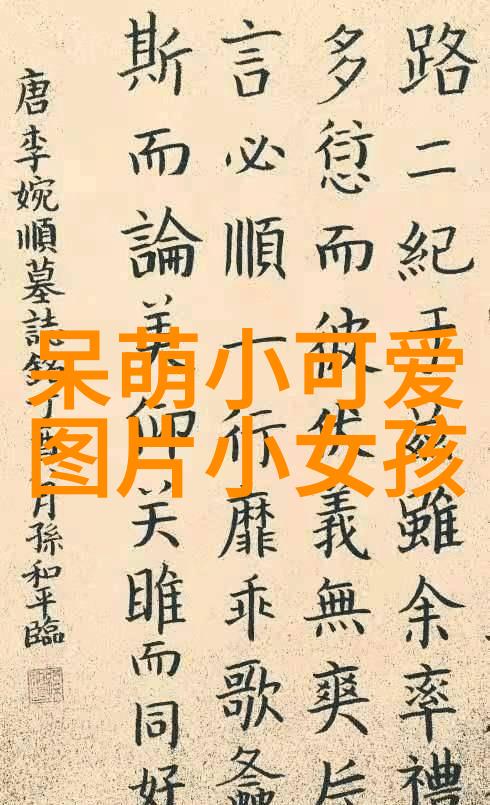 呆萌小可爱
图片小女孩
路二紀于茲雖余率禮
多愆而彼義無爽
言必順一行靡乖歌
斯而論美仰关雎而同好
唐李婉順墓誌銘月孫和平臨